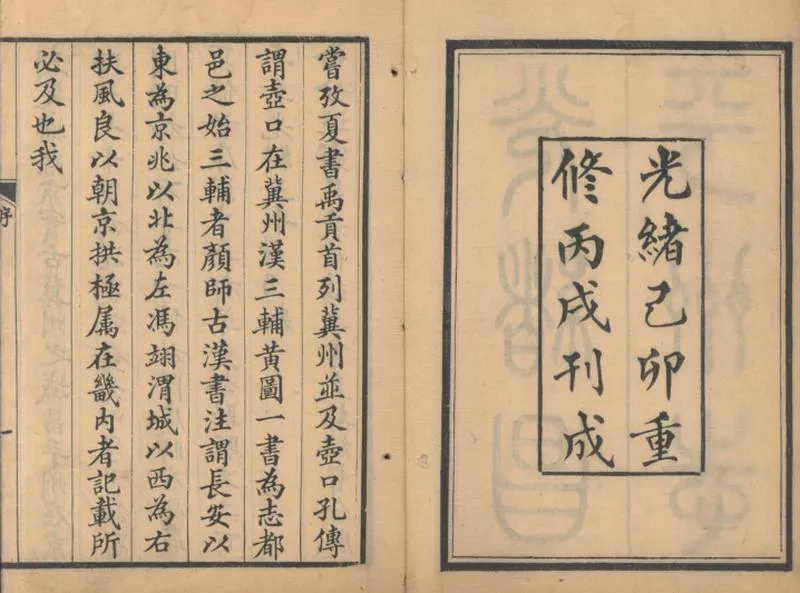 光緒己卯重
修丙戌刊成
嘗攷夏書禹貢首列冀州並及壺口孔傳
謂壺口在冀州漢三輔黃圖一書為志都
邑之始三輔者顏師古漢書注謂長安以
東為京兆以北為左馮翊渭城以西為右
扶風良以朝京拱極属在畿内者記載所
必及也我
序
一